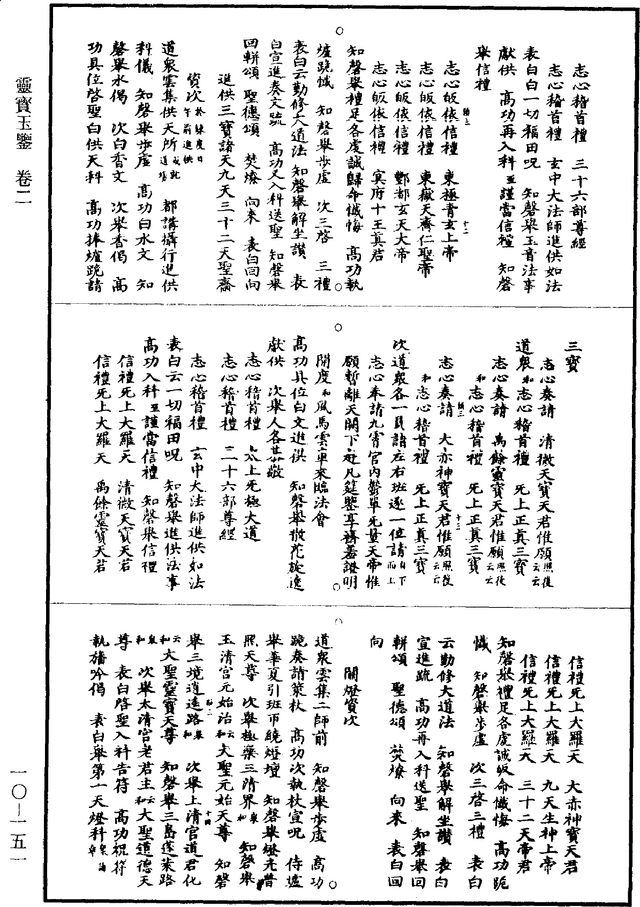 靈寶玉鑒 卷二
一〇—一五一
志心稽首禮 三十六部尊經
志心稽首禮 玄中大法師進供如法
表白白一切福田呪 知磬舉玉音法事
獻供 高功再入科至謹當信禮 知磬
舉信禮
志心皈依信禮 東極青玄上帝
志心皈依信禮 東嶽天齊仁聖帝
志心皈依信禮 酆都玄天大帝
志心皈依信禮 冥府十王真君
知磬舉禮足各虔誠歸命懺悔 高功執
爐跪懺 知磬舉步虛 次三啓 三禮
表白云勤修大道法 知磬舉解坐讚 表
白宣進奏文疏 高功又入科送聖 知磬舉
回軿頌 聖德頌 焚燎 向來 表白回向
進供三寶諸天九天三十二天聖齋
資次
道衆雲集供天所 都講攝行進供
科儀 知磬舉步虛 高功白水文 知
磬舉水偈 次白香文 次舉香偈 高
功具位啓聖白供天科 高功捧爐跪請
三寶
志心奏請 清微天寶天君惟願
道衆和志心稽首禮 无上正真三寶
志心奏請 禹餘靈寶天君惟願
和志心稽首禮 无上正真三寶
志心奏請 大赤神寶天君惟願
和志心稽首禮 无上正真三寶
次道衆各一員請左右班逐一位請
志心奉請九霄宮內
願暫離天闕下赴凡筵鑒享
開度和風馬雲車來臨法會
高功具位白文進供 知磬舉散花旋遶
獻供 次舉人各恭敬
志心稽首禮 太上无極大道
志心稽首禮 三十六部尊經
志心稽首禮 玄中大法師進供如法
表白云一切福田呪 知磬舉進供法事
高功入科至謹當信禮 知磬舉信禮
信禮无上大羅天 清微天寶天君
信禮无上大羅天 禹餘靈寶天君
信禮无上大羅天 大赤神寶天君
信禮无上大羅天 九天生神上帝
信禮无上大羅天 三十二天帝君
知磬舉禮足各虔誠皈命懺悔 高功跪
懺 知磬舉步虛 次三啓三禮 表白
云勤修大道法 知磬舉解坐讚 表白
宣進疏 高功再入科送聖 知磬舉回
軿頌 聖德頌 焚燎 向來 表白回
向
關燈資次
道衆雲集二師前 知磬舉步虛 高功
跪奏請策杖 高功次執杖宣呪 侍爐
舉華夏引班帀繞燈壇 知磬舉燈光普
照天尊 次舉極樂三清界 知磬舉
玉清宮元始治 大聖元始天尊 知磬
舉三境逍遙路 次舉上清宮道君化
大聖靈寶天尊 知磬舉三島蓬萊路
次舉太清宮老君主 大聖道德天
尊 表白啓聖入科告符 高功祝符
執旛吟偈 表白舉第一天燈科